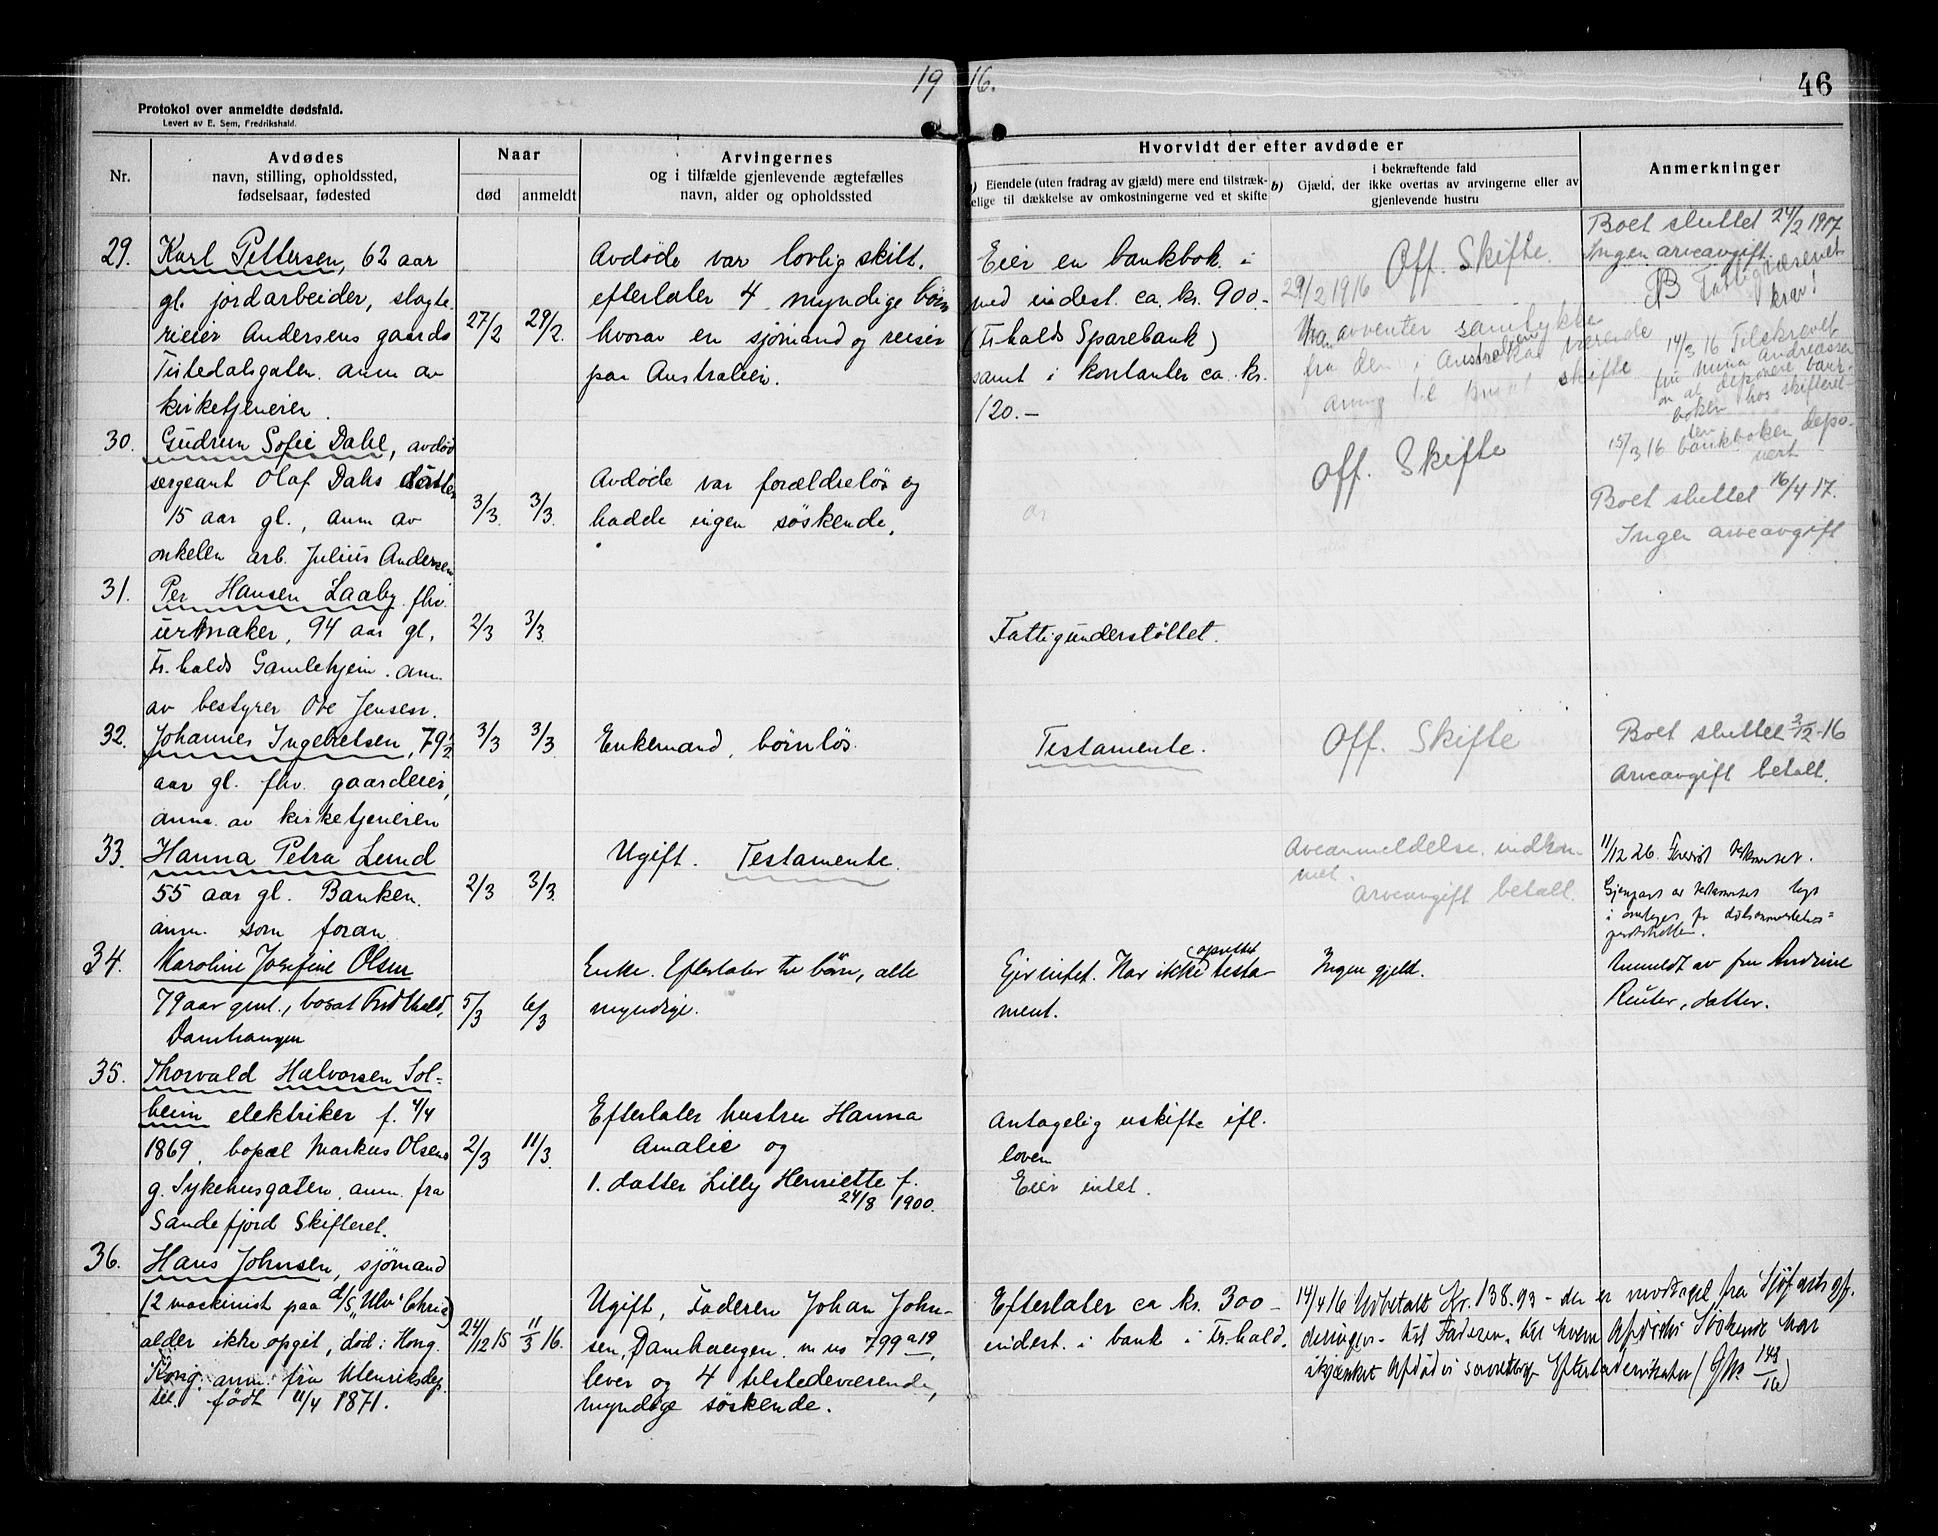 1916.
46
Protokol over anmeldte dødsfald.
Levert av E. Sem, Fredrikshald.
Nr.
Avdødes
navn, stilling, opholdssted,
fødselsaar, fødested
Naar
død
anmeldt
Arvingernes
og i tilfælde gjenlevende ægtefælles
navn, alder og opholdssted
Hvorvidt der efter avdøde er
a) Eiendele (uten fradrag av gjæld) mere end tilstræk-
kelige til dækkelse av omkostningerne ved et skifte
b)
i bekræftende fald
Gjæld, der ikke overtas av arvingerne eller av
gjenlevende hustru
Anmerkninger
29.
Karl Pettersen, 62 aar
gl. jordarbeider, slagte
rieier Andersens gaard
Tistedalsgaten. anm av
kirketjeneren.
27/2
29/2.
Avdøde var lovlig skilt.
efterlater 4 myndige børn
hvorav en sjømand og reiser
paa Australien.
Eier en bankbok i
med indest. ca. kr. 900.-
(Fr.halds Sparebank)
samt i kontanter ca. kr.
120.-
Off. Skifte.
29/2 1916
avventer samtykke
fra den i Australien værende
arving til privat skifte
Boet sluttet 24/2 1917
Ingen arveavgift.
NB Fattigvæsenet
krav!
14/3 16 Tilskrevet
fru Andreassen
om at deponere bank-
boken hos skifteret-
ten
15/3 16 bankboken depo-
nert
30.
Gudrun Sofie Dahl, avdød
sergeant Olaf Dahls datter
15 aar gl., anm av
onkelen arb. Julius Andersen.
3/3.
3/3.
Avdøde var forældreløs og
hadde ingen søskende.
Off. Skifte
Boet sluttet 16/4 17.
Ingen arveavgift
31.
Per Hansen Laaby. fhv.
urmaker, 94 aar gl.
Fr.halds Gamlehjem. anm.
av bestyrer Ove Jensen.
2/3
3/3.
Fattigunderstøttet.
32.
Johannes Ingebretsen, 79 1/2
aar gl. fhv. gaardeier,
anm. av kirketjeneren
3/3
3/3.
Enkemand, børnløs.
Testamente.
Off. Skifte
Boet sluttet 3/12-16
Arveavgift betalt.
33.
Hanna Petra Lund
55 aar gl. Banken.
anm. som foran
2/3
3/3.
Ugift. Testamente.
Arveanmeldelse indkom-
met.
Arveavgift betalt.
11/12 26.
Gjenpart av testamentet lagt
i omslaget for dødsanmeldelses=
protokollen.
34.
Karoline Josefine Olsen
79 aar gml., bosat Fredr.hald,
Damhaugen
5/3
6/3
Enke. Efterlater tre børn, alle
myndige.
Eier intet. Har ikke oprettet testa-
ment.
Ingen gjeld.
Anmeldt av fru Andrine
Reuter, datter.
35.
Thorvald Halvorsen Sol=
heim elektriker f. 4/4
1869, bopæl Markus Olsens
g. Sykehusgaten, anm. fra
Sandefjord Skifteret.
2/3
11/3.
Efterlater hustru Hanna
Amalie og
1. datter Lilly Henriette f.
24/8 1900.
Antagelig uskifte ifl.
loven
Eier intet.
36.
Hans Johnsen, sjømand
(2 maskinist paa d/s "Ulv" Chria)
alder ikke opgit, død i Hong.
Kong. anm. fra Utenriksdep.
tet. født 11/4 1871.
24/12 15
11/3 16.
Ugift, Faderen Johan John-
sen, Damhaugen m us 799 a 19,
lever og 4 tilstedeværende,
myndige søskende.
Efterlater ca kr. 300-
indest. i bank i Fr.hald.
14/4 16 Utbetalt Kr. 138.93 - der er modtagel fra Sjøfartsaf.
delingen - til Faderen, til hvem Afdødes Søskende har
skjænket Afdødes Efterladenskaber (G/No 143/16)